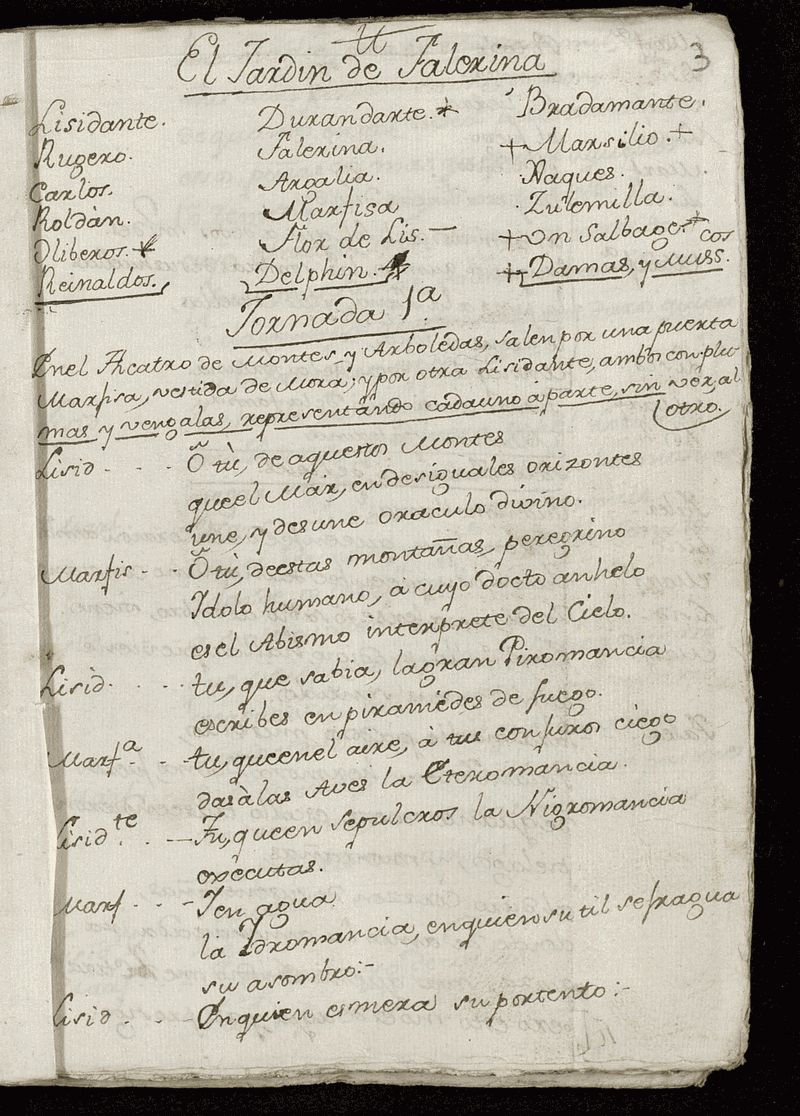 3
El Jardin de Falerina
Lisidante. Durandarte. Bradamante.
Rugero. Falerina. Marsilio.
Carlos. Argalia. Jaques.
Roldàn. Marfisa Zulemilla.
Oliberos. Flor de Lis. Un Salbage.
Reinaldos. Delphin. Damas, y Musscos
Jornada 1ª
En el Theatro de Montes, y Arboledas, salen por una puerta
Marfisa, vestida de Mora; y por otra Lisidante, ambos con plu-
mas y vengalas, representando cada uno à parte, sin ver, al
otro.
Lisid - - - Õ tù, de aquestos Montes
que el Mar, en desiguales orizontes
une, y desune oraculo divino.
Marfis - - Õ tù, de estas montañas, peregrino
Idolo humano, à cuyo docto anhelo
es el Abismo interprete del Cielo.
Lisid - - - tu, que sabia, la gran Piromancia
escribes en piramides de fuego.
Marfª - - tu, que en el aire, à tus conjuros ciego
das à las Aves la Eteromancia.
Lisidte. - Tu, que en sepulcros la Nigromancia
executas.
Marf - - - Y en agua
la Idromancia, en quien sutil se fragua
su asombro:-
Lisid - - En quien esmera su portento:-